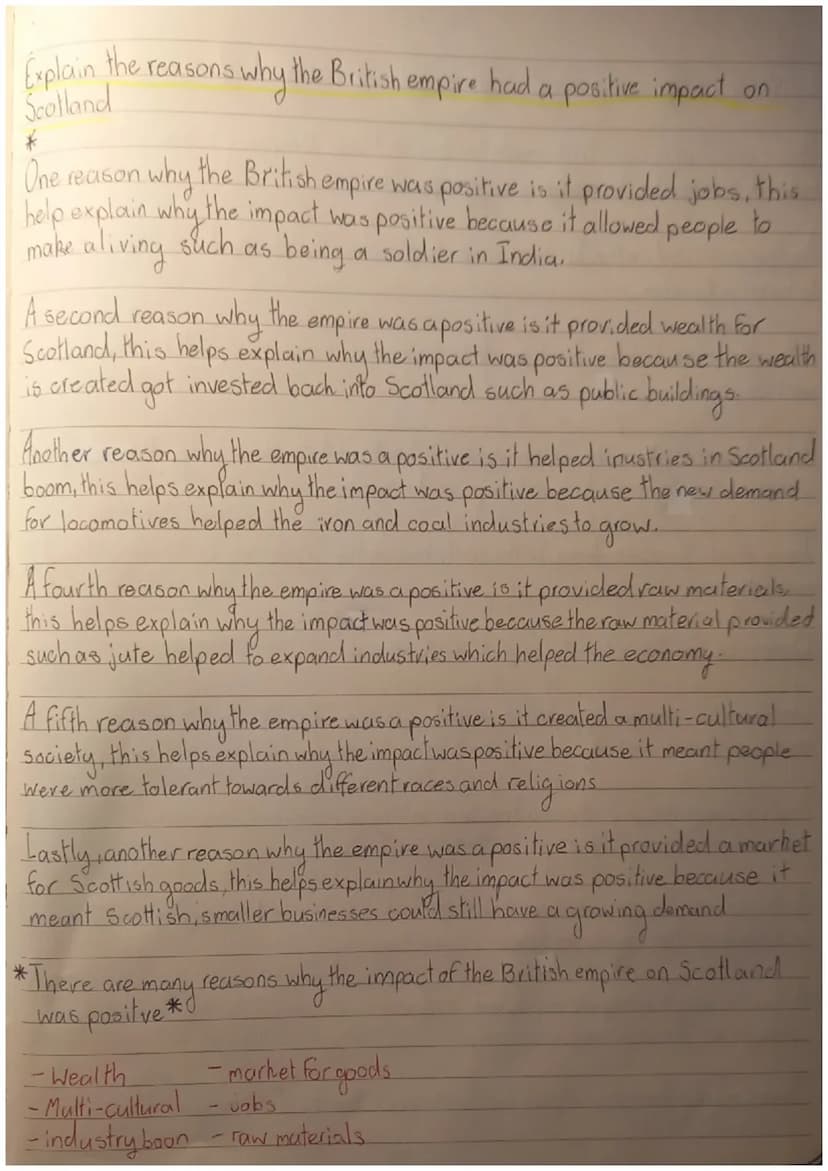 Explain the reasons why the British empire had a positive impact on
Scotland
*
One reason why the British empire was positive is it provided jobs, this
help explain why the impact was positive because it allowed people to
make a living such as being a soldier in India.
A second reason why the empire was a positive is it provided wealth for
Scotland, this helps explain why the impact was positive because the wealth
is created got invested back into Scotland such as public buildings.
Another reason why the empire was a positive is it helped inustries in Scotland
boom, this helps explain why the impact was positive because the new demand
for locomotives helped the iron and coal industries to grow.
A fourth reason why the empire was a positive is it provided raw materials,
this helps explain why the impact was positive because the raw material provided
such as jute helped to expand industries which helped the economy.
A fifth reason why the empire was a positive is it created a multi-cultural
society, this helps explain why the impact was positive because it meant people
were more tolerant towards different races and religions
Lastly, another reason why the empire was a positive is it provided a market
for Scottish goods, this helps explain why the impact was positive because it
meant Scottish, smaller businesses could still have a growing demand
*There are many reasons why the impact of the British empire on Scotland
was positve*
- Wealth - market for goods
- Multi-cultural - Jobs
- industry boon - raw materials